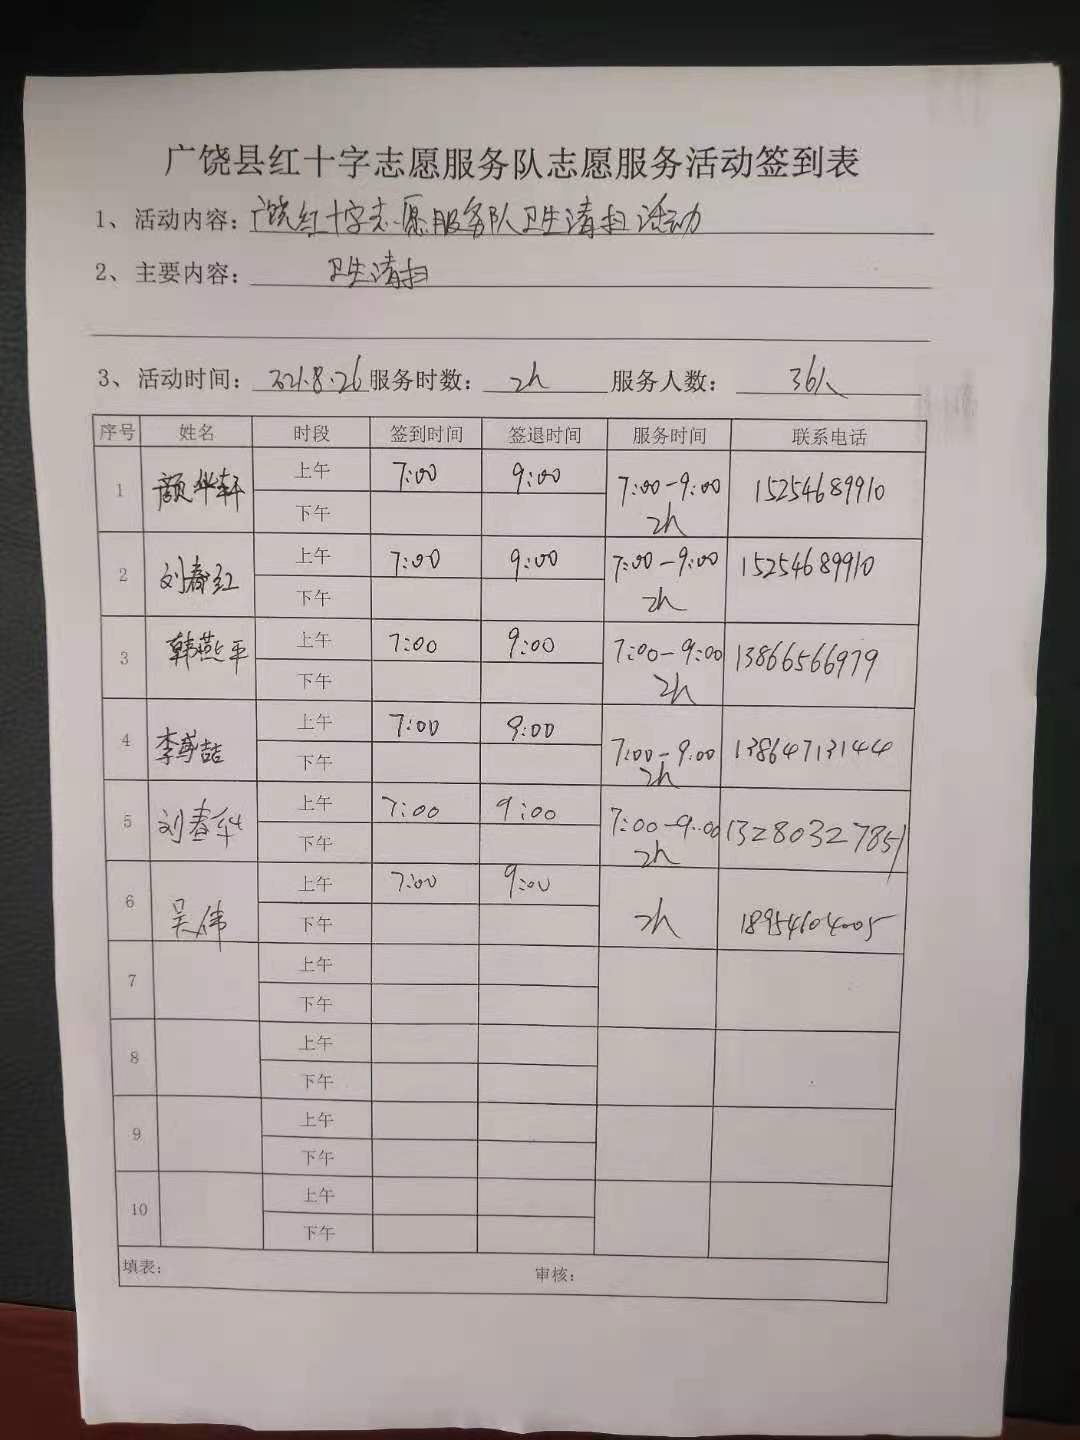 广饶县红十字志愿服务队志愿服务活动签到表
1、活动内容：广饶红十字志愿服务队卫生清扫活动
2、主要内容： 卫生清扫
3、活动时间：2021.8.26 服务时数： 2h 服务人数： 36人
序号 姓名 时段 签到时间 签退时间 服务时间 联系电话
1 颜华轩 上午 7:00 9:00 7:00-9:00 2h 15254689910
下午
2 刘春红 上午 7:00 9:00 7:00-9:00 2h 15254689910
下午
3 韩燕平 上午 7:00 9:00 7:00-9:00 2h 13866566979
下午
4 李 喆 上午 7:00 9:00 7:00-9:00 2h 13864713144
下午
5 刘春华 上午 7:00 9:00 7:00-9:00 2h 13280327851
下午
6 吴伟 上午 7:00 9:00 2h 18954604005
下午
7 上午
下午
8 上午
下午
9 上午
下午
10 上午
下午
填表： 审核：